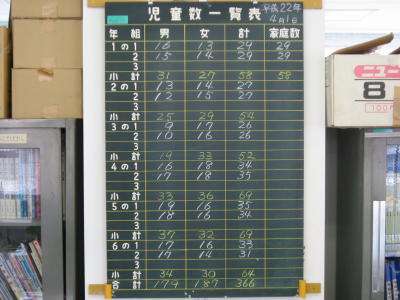 児童数一覧表 平成22年 4月1日
年 組 男 女 計 家庭数
1の1 16 13 29 29
2 15 14 29 29
3
小計 31 27 58 58
2の1 13 14 27
2 12 15 27
3
小計 25 29 54
3の1 9 17 26
2 10 16 26
3
小計 19 33 52
4の1 16 18 34
2 17 18 35
3
小計 33 36 69
5の1 19 16 35
2 18 16 34
3
小計 37 32 69
6の1 17 16 33
2 17 14 31
3
小計 34 30 64
合計 179 187 366
ニュー
8